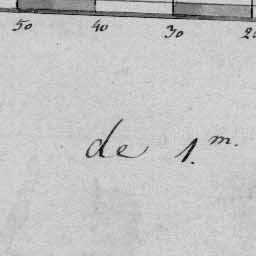 50 40 30
de 1.m.